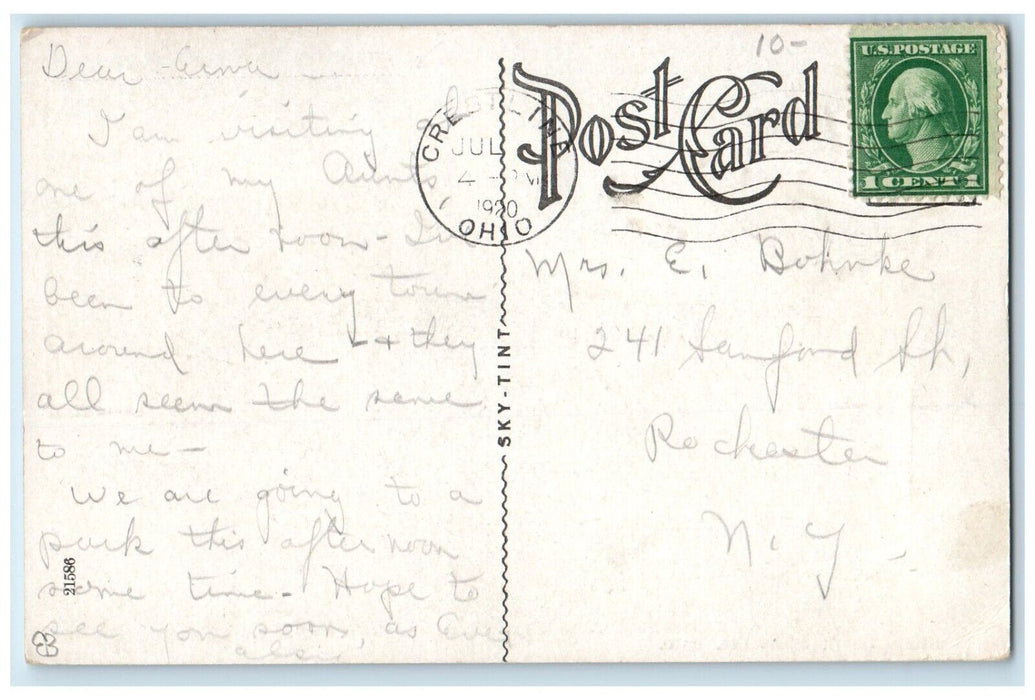 Dear Erma
I am visiting
one of my Aunts,
this after noon - I've
been to every town
around here - & they
all seem the same
to me -
We are going to a
park this after noon
some time - Hope to
see you soon, as Ever
21586
SKY-TINT
10-
Post Card
CRESTLINE
JUL
4 - PM
1920
OHIO
U.S. POSTAGE
1 CENT 1
Mrs. E. Bohnke
241 Sanford St,
Rochester
N. Y -